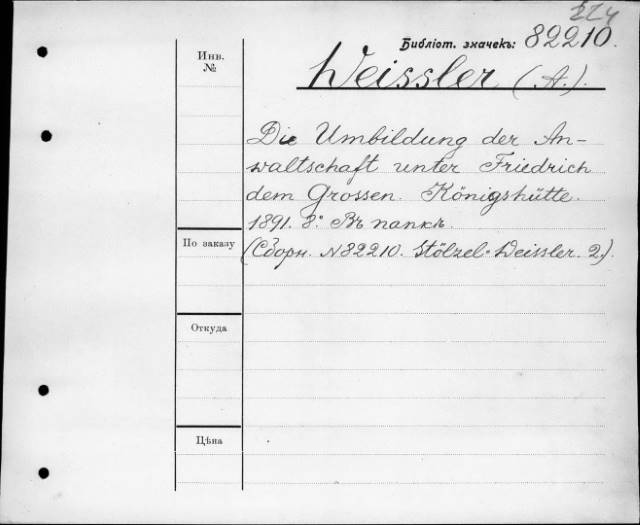 224
Библіот. значекъ: 82210.
Инв.
№
Weissler (A.).
Die Umbildung der An-
waltschaft unter Friedrich
dem Grossen. Königshütte.
1891. 8º. Въ папкѣ.
По заказу
(Сборн. N 82210. Stölzel-Weissler. 2.).
Откуда
Цѣна